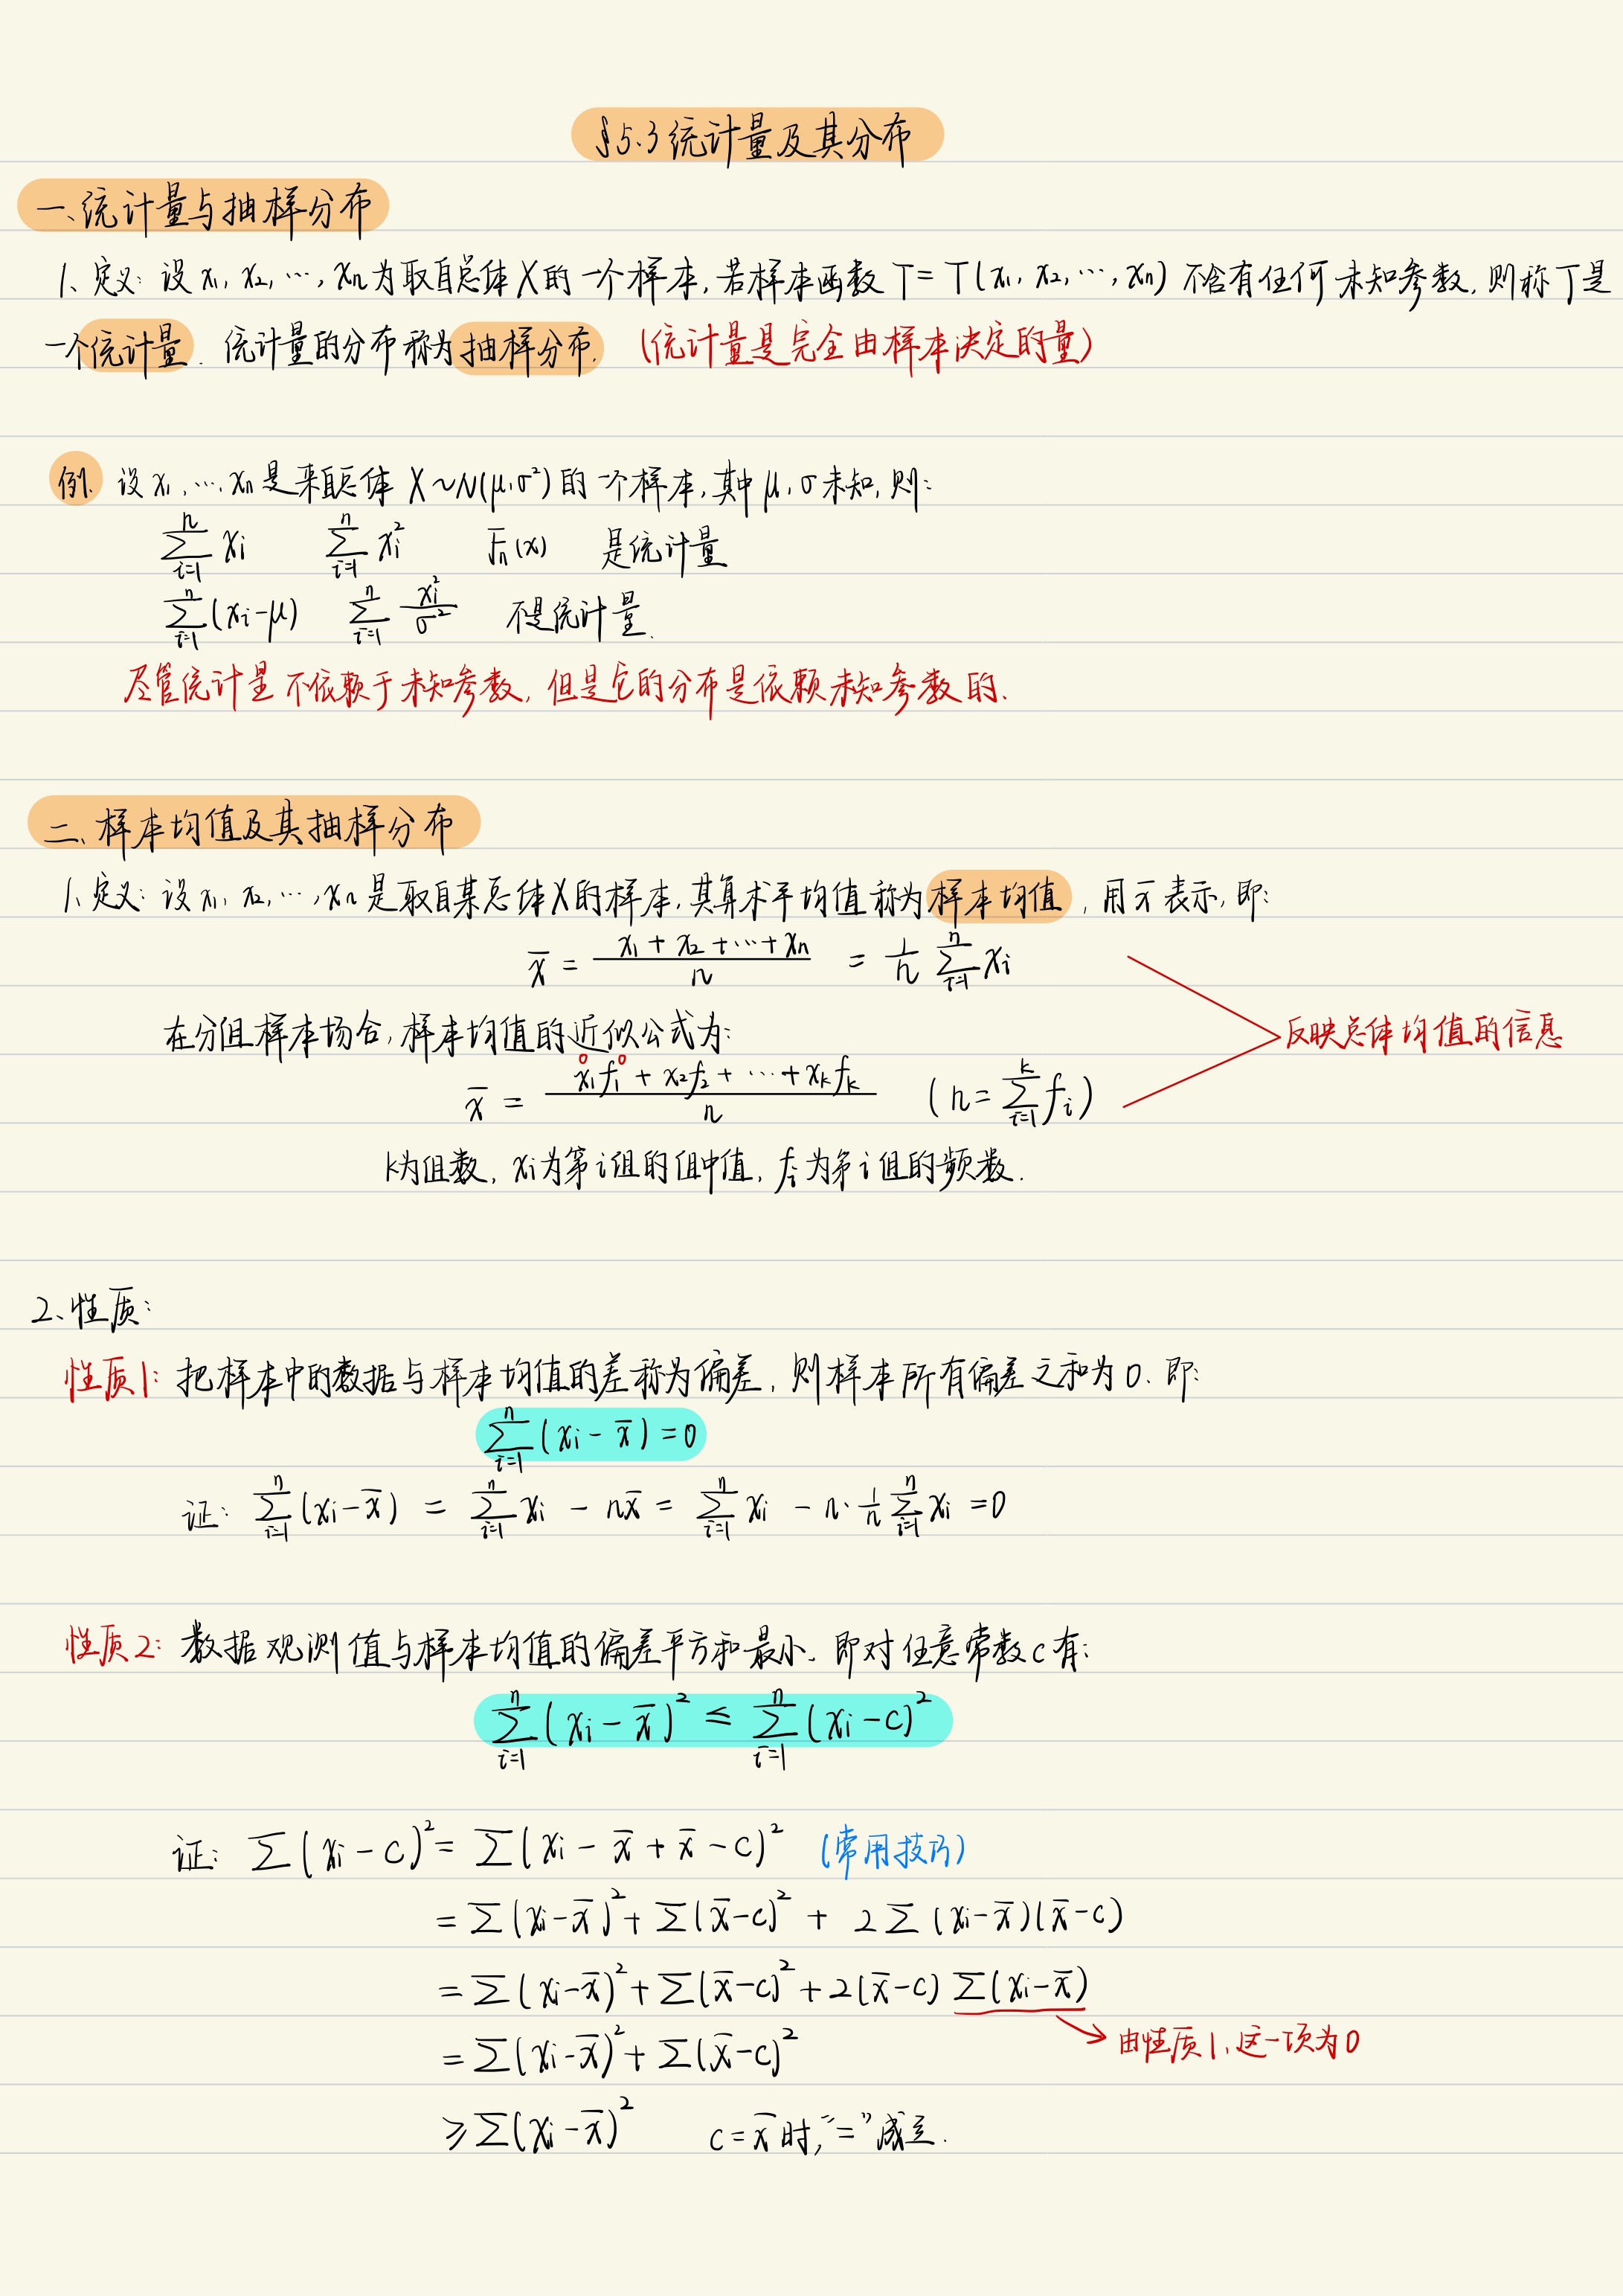 §5.3 统计量及其分布
一、统计量与抽样分布
1、定义：设 x₁, x₂, …, xₙ 为取自总体 X 的一个样本, 若样本函数 T = T(x₁, x₂, …, xₙ) 不含有任何未知参数, 则称 T 是
一个统计量. 统计量的分布称为抽样分布. (统计量是完全由样本决定的量)
例. 设 x₁, …, xₙ 是来自总体 X ~ N(μ, σ²) 的一个样本, 其中 μ, σ 未知, 则:
∑ᵢ₌₁ⁿ xᵢ ∑ᵢ₌₁ⁿ xᵢ² Fₙ(x) 是统计量
∑ᵢ₌₁ⁿ (xᵢ-μ) ∑ᵢ₌₁ⁿ xᵢ²/σ² 不是统计量.
尽管统计量不依赖于未知参数, 但是它的分布是依赖未知参数的.
二、样本均值及其抽样分布
1、定义：设 x₁, x₂, …, xₙ 是取自某总体 X 的样本, 其算术平均值称为样本均值, 用 x̄ 表示, 即:
x̄ = (x₁ + x₂ + … + xₙ)/n = 1/n ∑ᵢ₌₁ⁿ xᵢ
在分组样本场合, 样本均值的近似公式为:
反映总体均值的信息
x̄ = (x₁f₁ + x₂f₂ + … + xₖfₖ)/n (n = ∑ᵢ₌₁ᵏ fᵢ)
k为组数, xᵢ为第i组的组中值, fᵢ为第i组的频数.
2、性质:
性质1: 把样本中的数据与样本均值的差称为偏差, 则样本所有偏差之和为0. 即:
∑ᵢ₌₁ⁿ (xᵢ - x̄) = 0
证: ∑ᵢ₌₁ⁿ (xᵢ - x̄) = ∑ᵢ₌₁ⁿ xᵢ - nx̄ = ∑ᵢ₌₁ⁿ xᵢ - n·1/n ∑ᵢ₌₁ⁿ xᵢ = 0
性质2: 数据观测值与样本均值的偏差平方和最小. 即对任意常数c有:
∑ᵢ₌₁ⁿ (xᵢ - x̄)² ≤ ∑ᵢ₌₁ⁿ (xᵢ - c)²
证: ∑(xᵢ - c)² = ∑(xᵢ - x̄ + x̄ - c)² (常用技巧)
= ∑(xᵢ - x̄)² + ∑(x̄ - c)² + 2∑(xᵢ - x̄)(x̄ - c)
= ∑(xᵢ - x̄)² + ∑(x̄ - c)² + 2(x̄ - c)∑(xᵢ - x̄)
由性质1, 这一项为0
= ∑(xᵢ - x̄)² + ∑(x̄ - c)²
≥ ∑(xᵢ - x̄)² c = x̄ 时, "=" 成立.